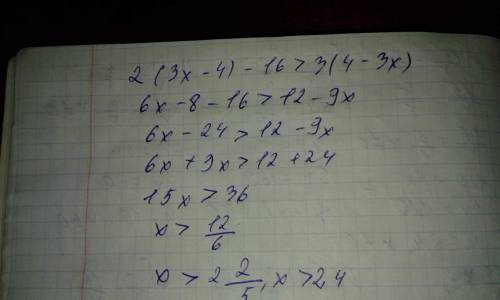 2(3x-4)-16>3(4-3x)
6x-8-16>12-9x
6x-24>12-9x
6x+9x>12+24
15x>36
x>12/6
x>2 2/5, x>24